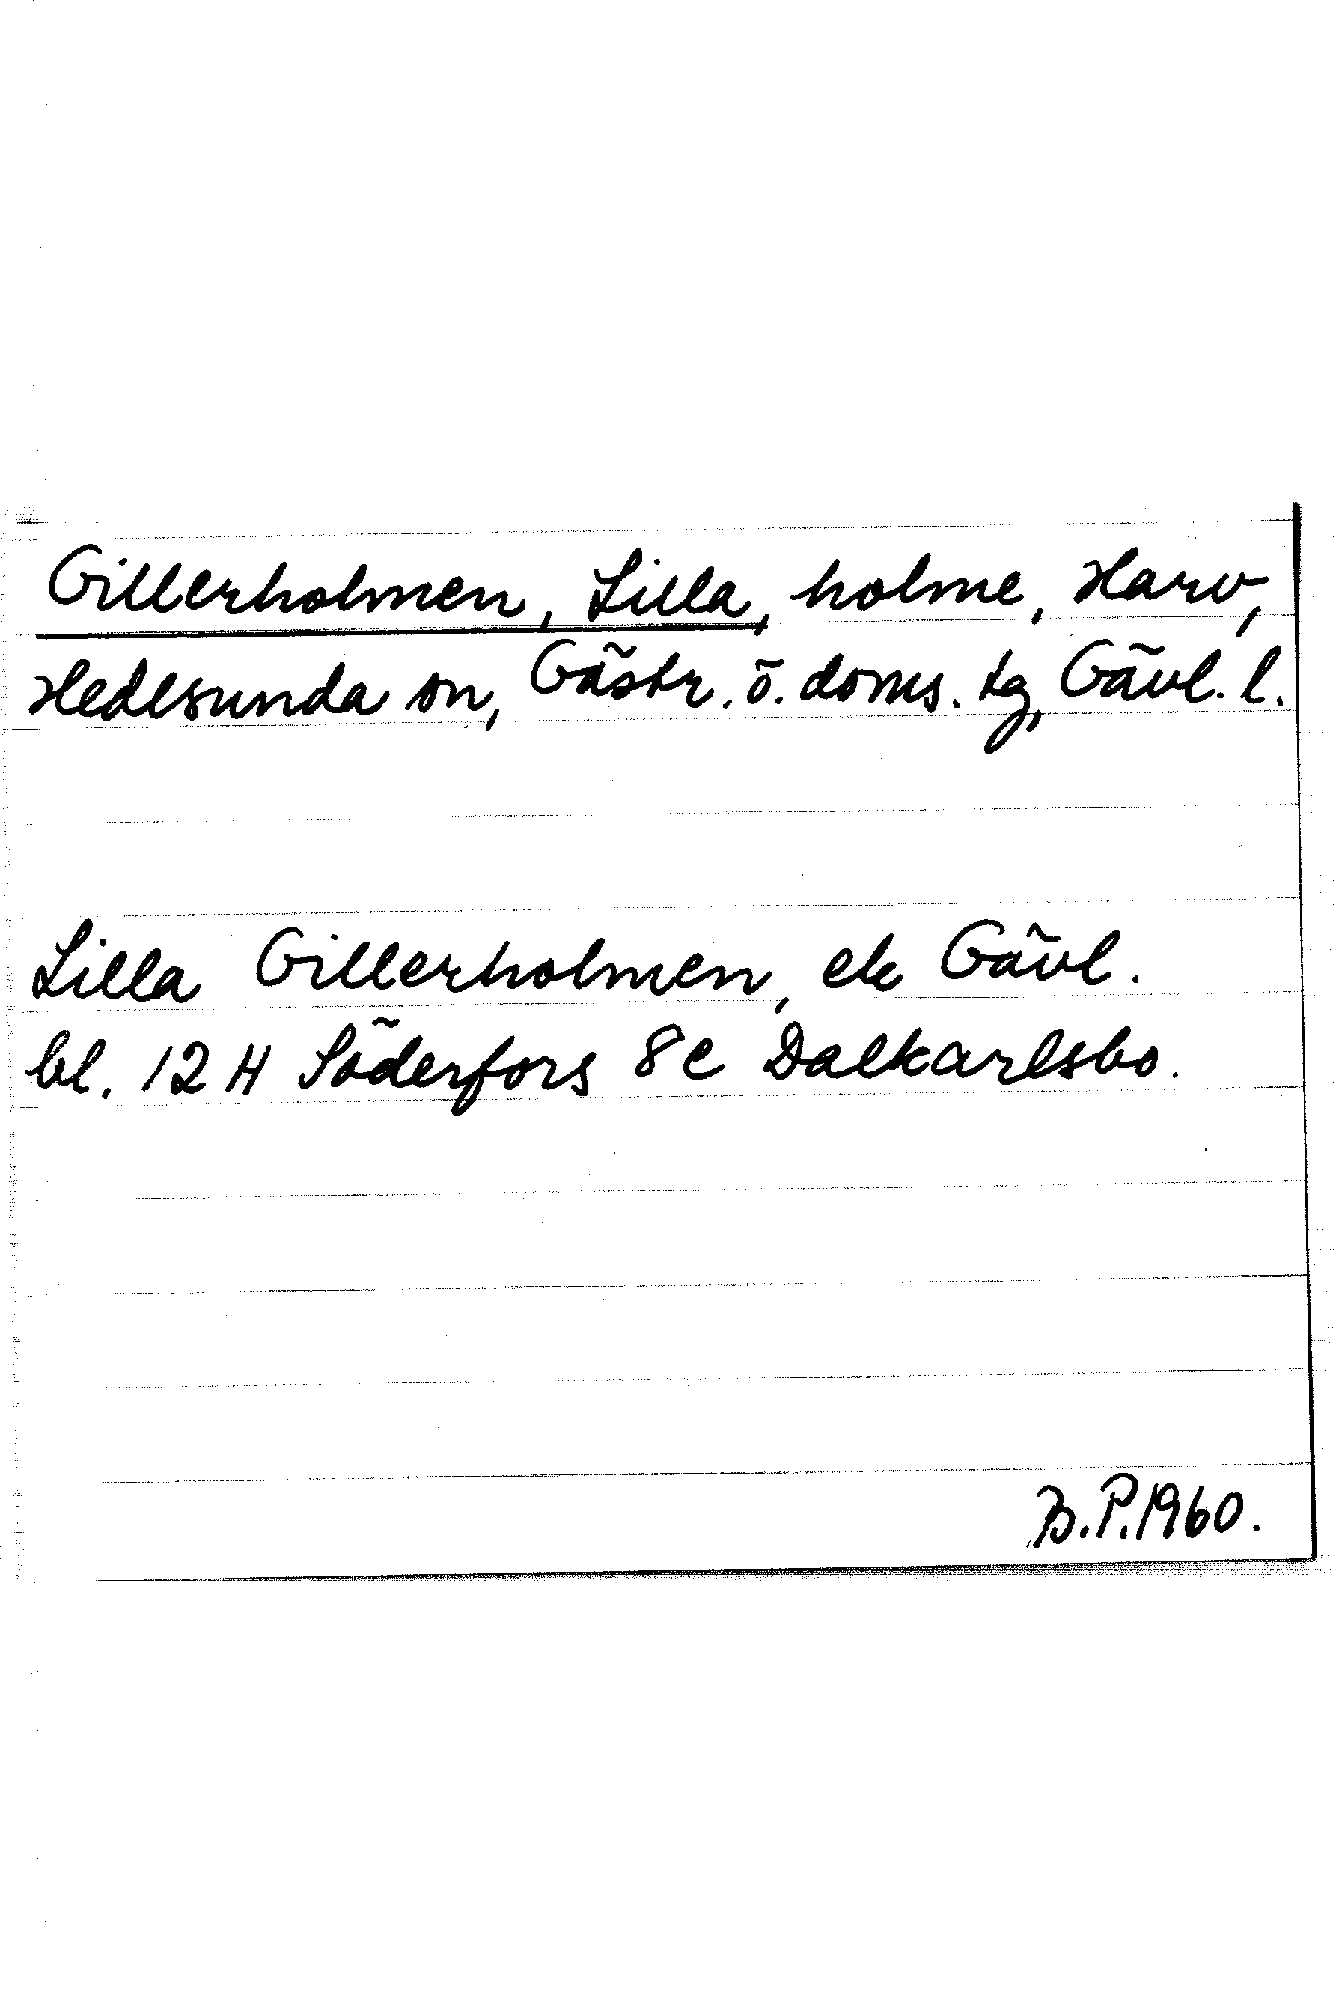 Gillerholmen, Lilla, holme, Harv,
Hedesunda sn, Gästr. ö. doms. tg, Gävl. l.
Lilla Gillerholmen, ek Gävl.
bl. 12 H Söderfors 8 e Dalkarlsbo.
B.P. 1960.